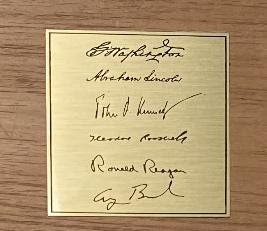 G Washington
Abraham Lincoln
John F Kennedy
Theodore Roosevelt
Ronald Reagan